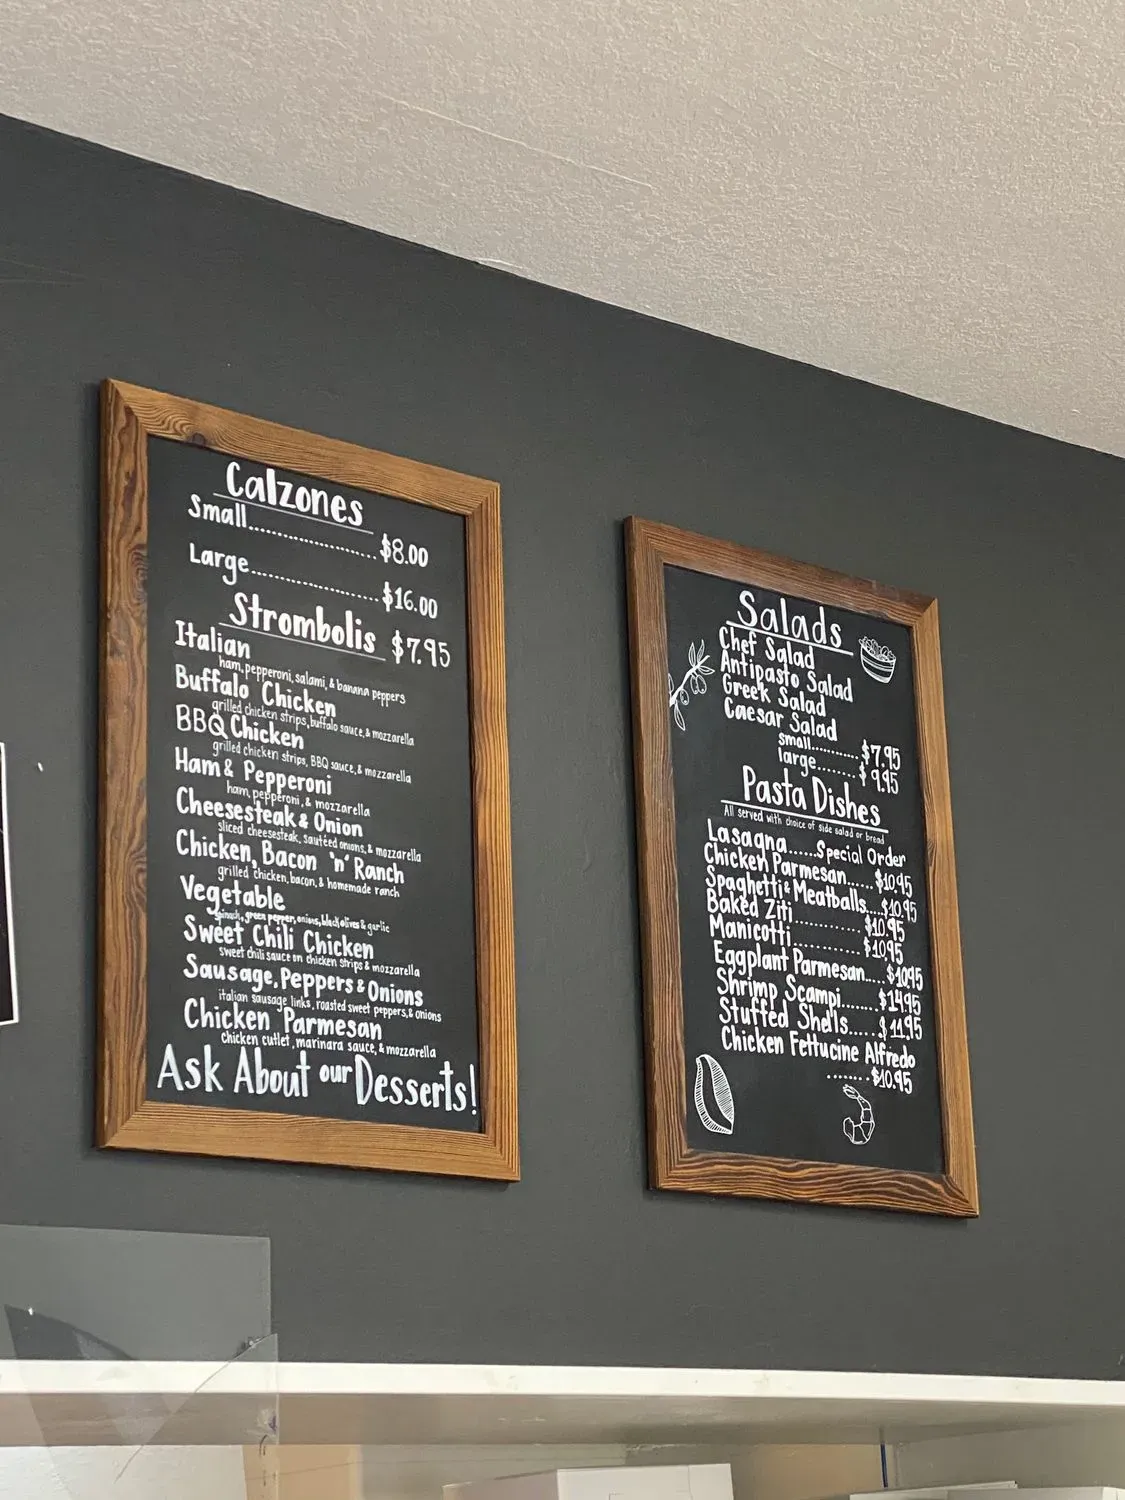 Calzones
Small.................... $8.00
Large.................... $16.00
Strombolis $7.95
Italian
ham, pepperoni, salami, & banana peppers
Buffalo Chicken
grilled chicken strips, buffalo sauce, & mozzarella
BBQ Chicken
grilled chicken strips, BBQ sauce, & mozzarella
Ham & Pepperoni
ham, pepperoni, & mozzarella
Cheesesteak & Onion
sliced cheesesteak, sautéed onions, & mozzarella
Chicken, Bacon 'n' Ranch
grilled chicken, bacon, & homemade ranch
Vegetable
spinach, green pepper, onions, black olives & garlic
Sweet Chili Chicken
sweet chili sauce on chicken strips & mozzarella
Sausage, Peppers & Onions
italian sausage links, roasted sweet peppers, & onions
Chicken Parmesan
chicken cutlet, marinara sauce, & mozzarella
Ask About our Desserts!
Salads
Chef Salad
Antipasto Salad
Greek Salad
Caesar Salad
small.......... $7.95
large........ $9.95
Pasta Dishes
All served with choice of side salad or bread
Lasagna......Special Order
Chicken Parmesan...... $10.95
Spaghetti & Meatballs....$10.95
Baked Ziti............ $10.95
Manicotti............ $10.95
Eggplant Parmesan.... $10.95
Shrimp Scampi....... $14.95
Stuffed Shells..... $11.95
Chicken Fettucine Alfredo
........$10.95